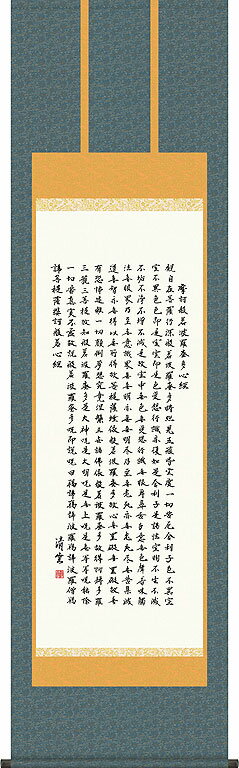 摩訶般若波羅蜜多心経
観自在菩薩行深般若波羅蜜多時照見五蘊皆空度一切苦厄舎利子色不異空
空不異色色即是空空即是色受想行識亦復如是舎利子是諸法空相不生不滅
不垢不浄不増不減是故空中無色無受想行識無眼耳鼻舌身意無色声香味触
法無眼界乃至無意識界無無明亦無無明尽乃至無老死亦無老死尽無苦集滅
道無智亦無得以無所得故菩提薩埵依般若波羅蜜多故心無罣礙無罣礙故無
有恐怖遠離一切顛倒夢想究竟涅槃三世諸仏依般若波羅蜜多故得阿耨多羅
三藐三菩提故知般若波羅蜜多是大神呪是大明呪是無上呪是無等等呪能除
一切苦真実不虚故説般若波羅蜜多呪即説呪曰羯諦羯諦波羅羯諦波羅僧羯
諦菩提薩婆訶般若心経
清雲